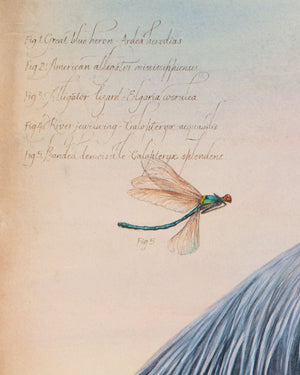 Fig 1. Great blue heron - Ardea herodias
Fig 2. American alligator mississippiensis
Fig 3. Alligator lizard - Elgaria coerulea
Fig 4. River jewelwing - Calopteryx aequabilis
Fig 5. Banded demoiselle Calopteryx splendens
Fig 5